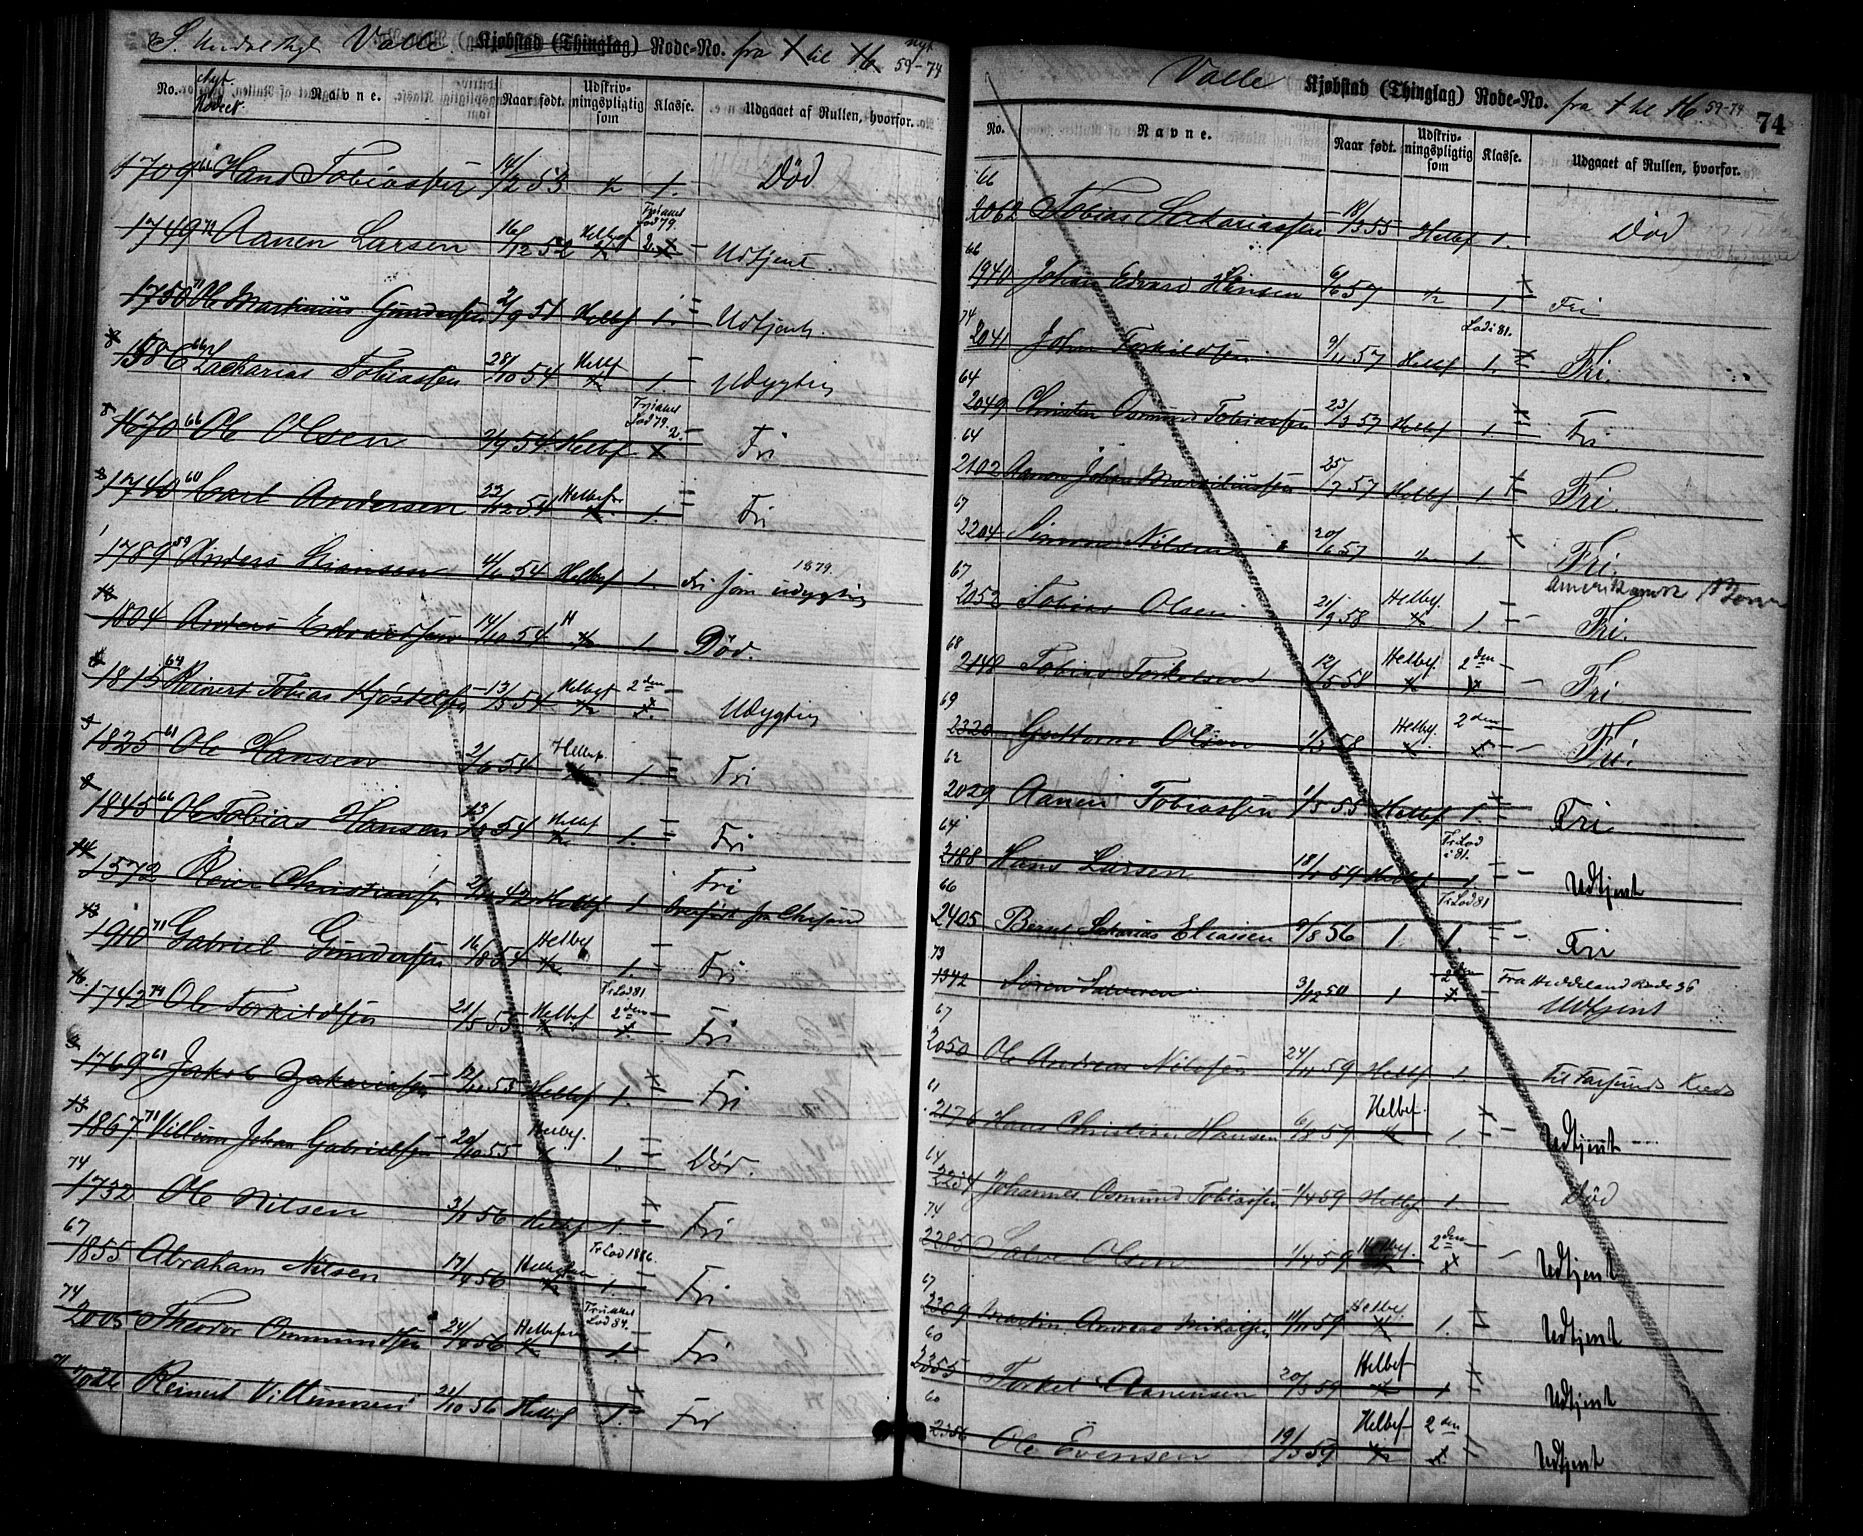 S. Undal Valle Kjøbstad (Thinglag) Rode-No. fra 1 til 16 Nyt 59-74
No. Nyt Rodent. Navne. Naar født. Udskrivningspligtig som Klasse. Udgaaet af Rullen, hvorfor.
1709 Hans Tobiassen 14/2 53 1/2 1. Død
1749 72 Aanen Larsen 16/12 52 Helbef 2 Frinul Lod 79. Udtjent
1750 71 Ole Martinius Gundersen 2/9 51 Helbef 1. Udtjent.
1586 Zackarias Tobiassen 28/10 54 Helbf 1. Udygtig
1670 66 Ole Olsen 2/9 54 Helbf Lod 79. 2. Fri
1740 60 Carl Andersen 23/12 54 Helbef 1. Fri
1789 59 Anders 4/6 54 Helbef 1. Fri som udygtig 1879.
1804 Anders Edvardsen 14/10 54 1. Død.
1815 64 Reinert Tobias 13/5 54 Helbef 2den Udygtig
1825 61 Ole Hansen 2/6 54 Helbef. 1. Fri
1845 66 Ole Tobias Hansen 13/8 54 Helbf 1. Fri
1572 Christiansen 42 Helbf 1 Fri
1910 71 Gabriel Gundersen 16/8 54 Helbef 1. Fri
1742 74 Ole Torkildsen 21/5 55 Helbef Fr Lod 81 2den Fri
1769 61 Jakob Zakariassen 12/12 55 Helbef 1. Fri
1867 71 Villum Johan Gabrielsen 20/10 55 Helbef. 1. Død.
74
1732 Ole Nilsen 3/8 56 Helbf 1. Fri
67
1855 Abraham Nilsen 17/4 56 Fr Lod 1886. 1. Fri
74
2005 Theodor Ommundsen 24/10 56 Lod 84. 1. Fri
Reinert Villumsen 24/10 56 Helbf 1. Fri
Valle Kjøbstad (Thinglag) Rode-No. fra 1 til 16 59-74
74
No. Navne. Naar født. Udskrivningspligtig som Klasse. Udgaaet af Rullen, hvorfor.
66
2062 Tobias Sackariassen 18/3 55 Helbf 1. Død
66
1940 Johan Edvard Hansen 6/6 57 1/2 1 Fri
74
2041 John Torkildsen 9/11 57 Helbf Lod i 81. 1. Fri.
64
2049 Christen Osmund Tobiassen 23/3 57 Helbf 1. Fri
64
2102 Johan 25/7 57 Helbf 1 Fri.
67
2204 Simon Nilsen 20/6 57 1/2 1 Fri.
67
2052 Tobias Olsen 21/9 58 Helbf. 1. Fri.
68
2148 Tobias Torkelsen 12/5 58 Helbef 2den Fri
69
2320 Guttorm Olsen 1/3 58 Helbf. 2den Fri.
62
2029 Aanen Tobiassen 1/5 55 Helbf 1. Fri
64
2188 Hans Larsen 18/8 59 Helbf Fr Lod i 81. 1. Udtjent
66
2405 Bernt Sakarias Eliassen 9/8 56 1. Fr Lod 81 1. Fri
73
1342 Søren Salvesen 3/12 50 1 2den Fra Heddeland Rode 36 Udtjent
67
2050 Ole Andreas Nilsen 24/11 59 Helbf 1. Til Farsunds Kreds
61
2176 Hans Christian Hansen 6/8 59 Helbef. 1. Udtjent
64
2234 Johannes Osmund Tobiassen 1/4 59 Helbf 1. Død
74
2285 Salve Olsen 1/4 59 Helbf. 2den Udtjent
67
2309 Martin Andreas Mikalsen 14/11 59 Helbef 1. Udtjent
60
2355 Torkel Aanensen 20/3 59 Helbef 1 Udtjent
60
2356 Ole Evensen 19/3 59 Helbef 2den Udtjent